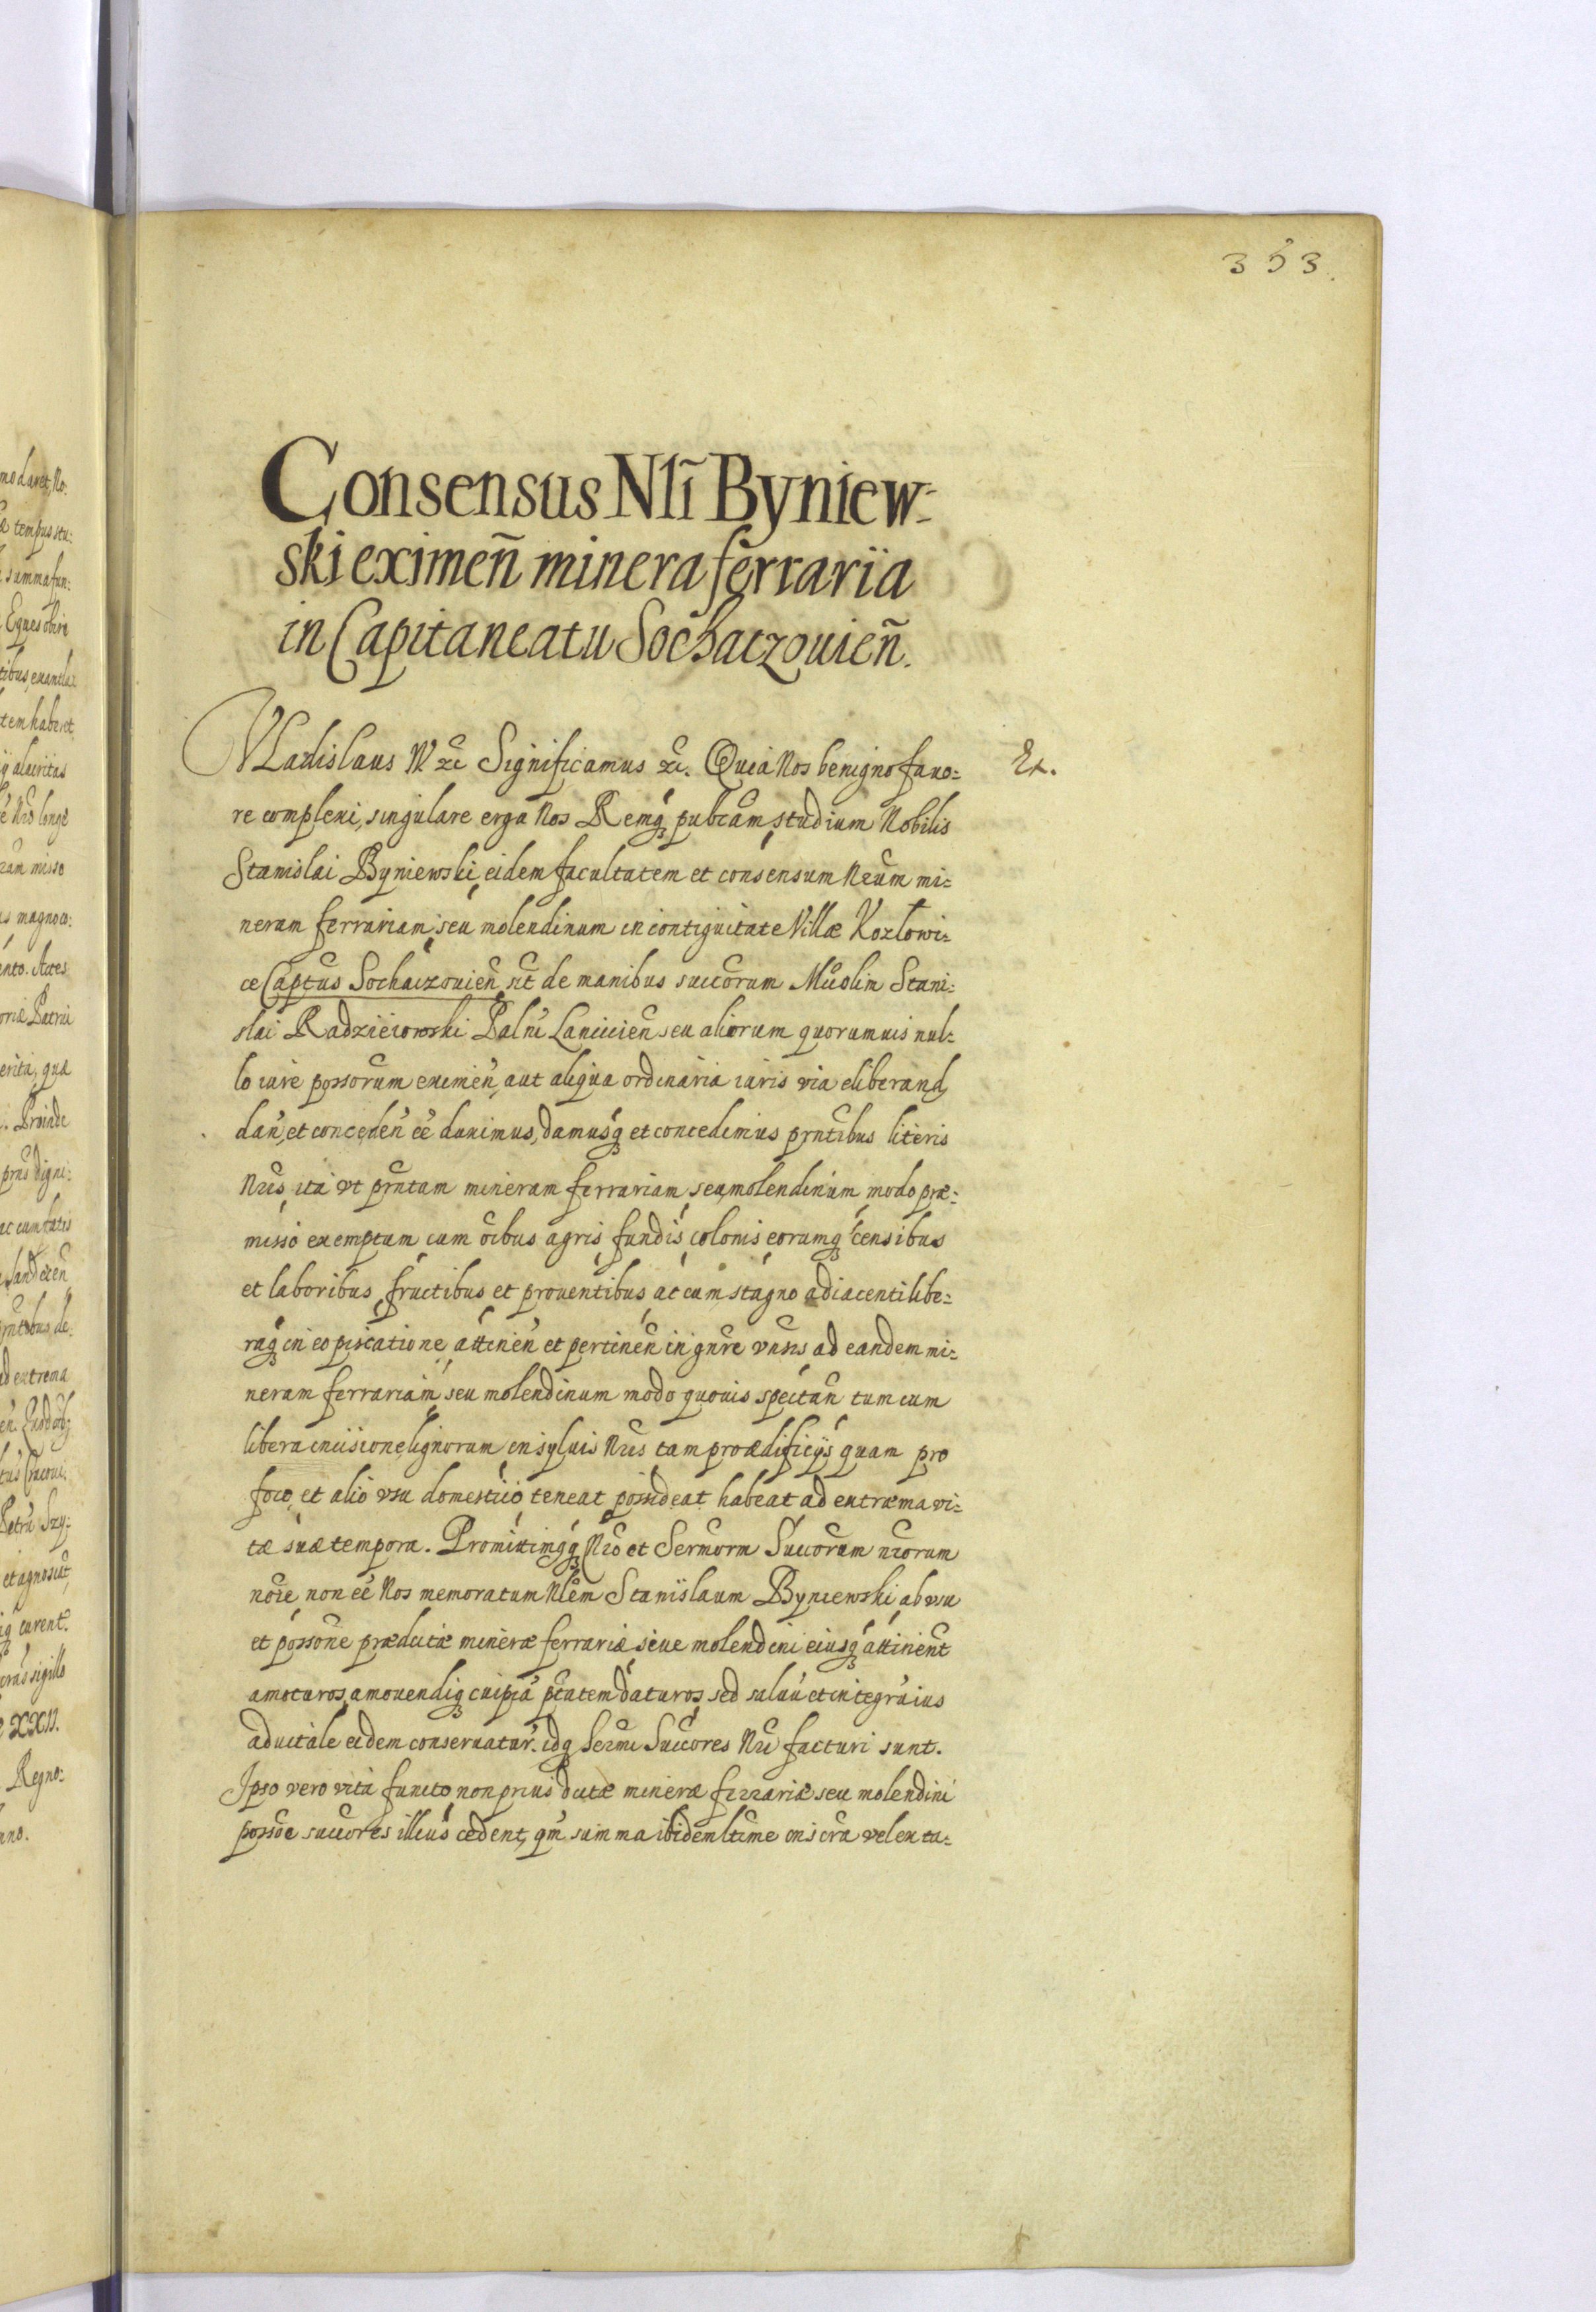 353.
Consensus Nlī Byniew-
ski eximeñ minera ferrariïa
in Capitaneatu Sochaczouieñ.
VLadislaus IV &c Significamus &c. Quia Nos benigno fauo-
Ex.
re complexi, singulare erga Nos Remq; pubcam studium Nobilis
Stanislai Byniewski, eidem facultatem et consensum Nrum mi-
neram ferrariam, seu molendinum in contiguitate Villæ Kozłowi-
ce Captus Sochaczouien sit de manibus succorum Mci olim Stani-
slai Radzieiowski Palni Lancicien seu aliorum quorumuis nul-
lo iure possorum eximen, aut aliqua ordinaria iuris via eliberand,
dan, et conceden eē duximus, damusq; et concedimus prntibus literis
Nris, ita vt prntam mineram ferrariam, seu molendinum, modo præ-
misso exemptum cum oibus agris, fundis, colonis, eorumq; censibus
et laboribus, fructibus et prouentibus, ac cum stagno adiacenti libe-
raq; in eo piscatione, attinen et pertinen in gnre vnsis ad eandem mi-
neram ferrariam, seu molendinum modo quouis spectan tum cum
libera incisione lignorum in syluis Nris tam pro ædificijs, quam pro
foco, et alio vsu domestico, teneat, possideat, habeat, ad extræma vi-
tæ suæ tempora. Promittimq; Nro et Sermorm Succorum nrorum
noie, non eē Nos memoratum Nlem Stanislaum Byniewski, ab vsu
et possone prædictæ mineræ ferrariæ, siue molendini eiusq; attinent
amoturos, amouendiq; cuipia ptatem daturos, sed saluu et integru ius
aduitale eidem conseruatur. idq; Sermi Succores Nri facturi sunt.
Ipso vero vita functo, non prius dictæ mineræ ferrariæ seu molendini
possoe succores illius cedent, qm summa ibidem ltime inscra vel exta-